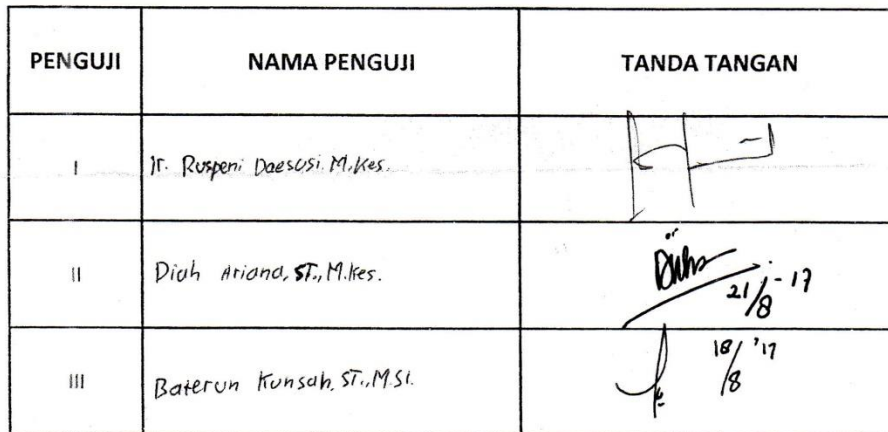 PENGUJI NAMA PENGUJI TANDA TANGAN
I Ir. Ruspeni Daesusi. M.Kes.
II Diah Ariana, ST., M.Kes. 21/8-17
III Baterun Kunsah, ST., M.Si. 18/8 '17